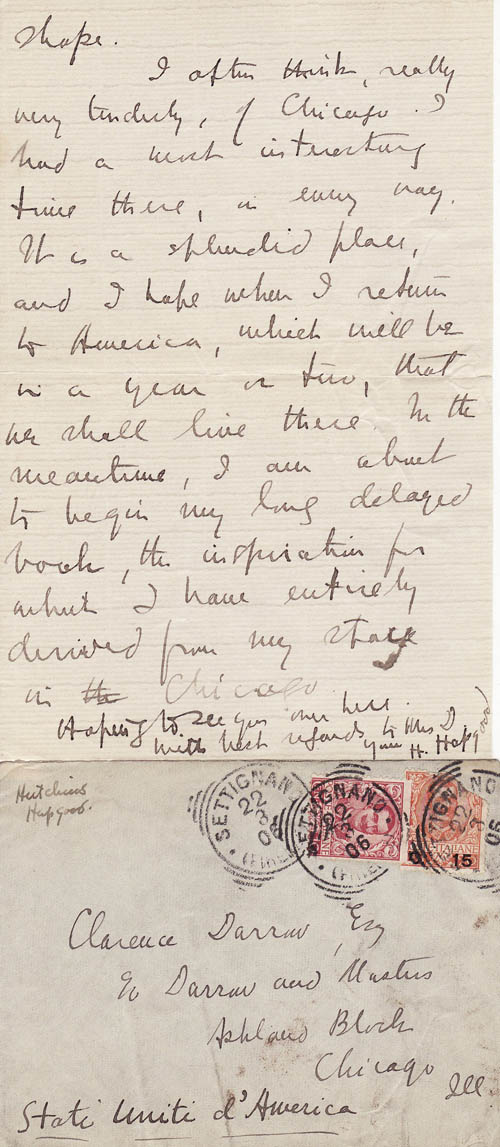 shape.
I often think, really
very tenderly, of Chicago. I
had a most interesting
time there, in every way.
It is a splendid place,
and I hope when I return
to America, which will be
in a year or two, that
we shall live there. In the
meantime, I am about
to begin my long delayed
book, the inspiration for
which I have entirely
derived from my stay
in the Chicago
Hoping to see you over here.
With best regards to Mrs D
yours H. Hapgood
Hutchins
Hapgood.
SETTIGNANO
22
06
(FIRE
SETTIGNANO
22
06
(FIRE
TIGNANO
06
15
Clarence Darrow, Esq
c/o Darrow and Masters
Ashland Block
Chicago
Ill.
Stati Uniti d'America